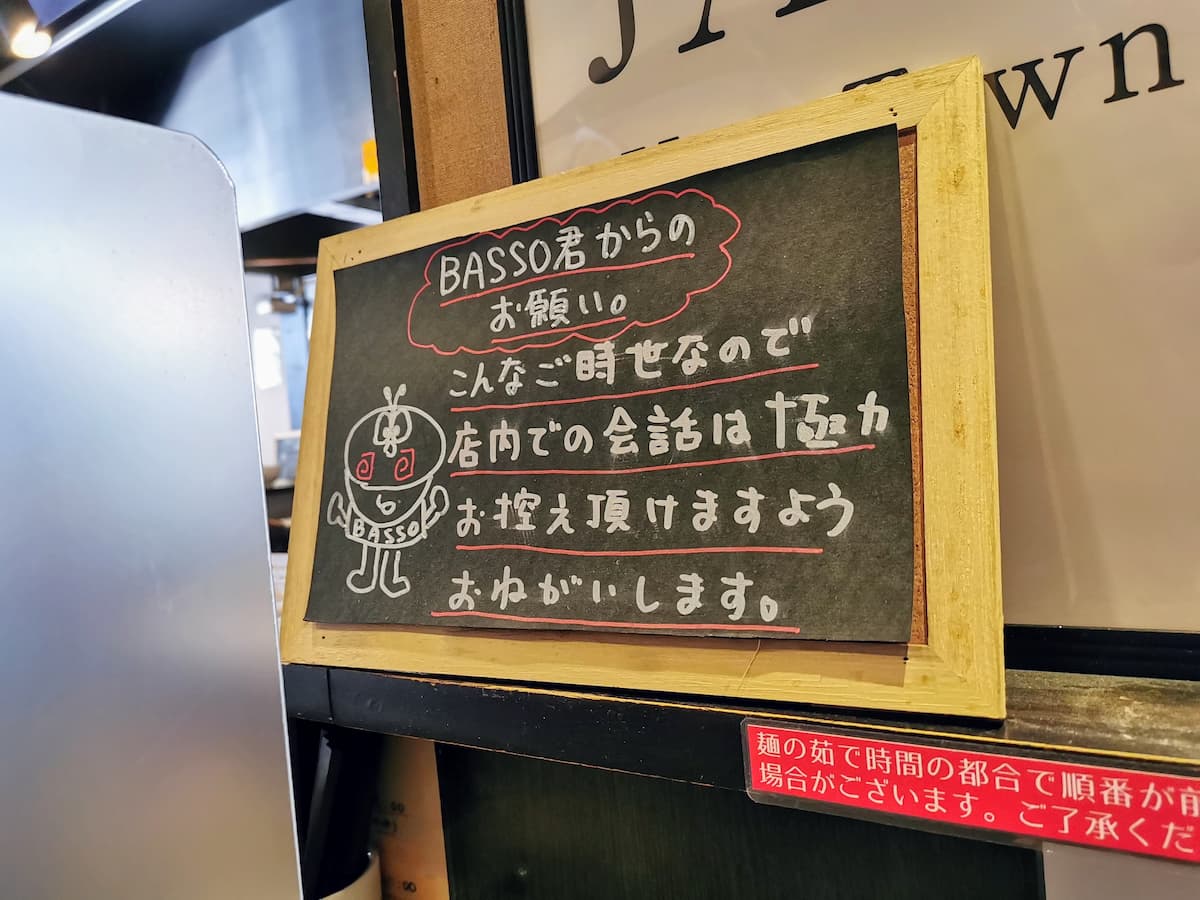 BASSO君からの
お願い。
こんなご時世なので
店内での会話は極力
お控え頂けますよう
おねがいします。
BASSO
own
麺の茹で時間の都合で順番が前
場合がございます。ご了承くだ